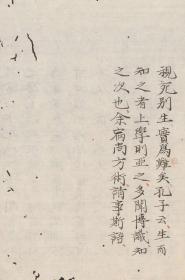 視死別生實為難矣孔子云生而
知之者上學則亞之多聞博識知
之次也余宿尚方術請事斯語